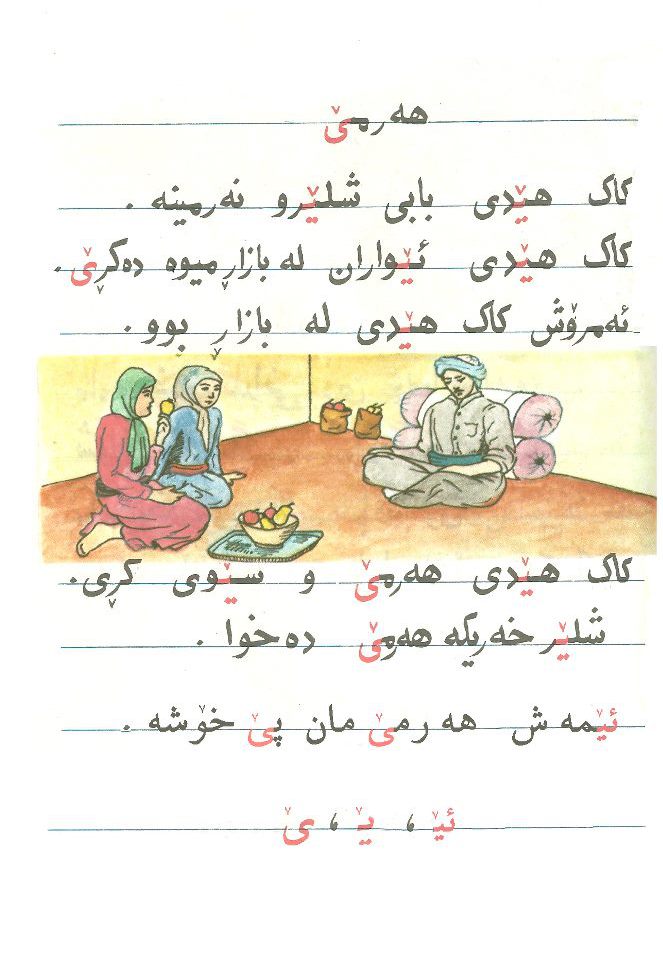 هەرمێ
کاک هێدی بابی شلێرو نەرمینە .
کاک هێدی ئێواران لە بازاڕ میوە دەکڕێ .
ئەمرۆش کاک هێدی لە بازاڕ بوو .
کاک هێدی هەرمێ و سێوی کڕی .
شلێر خەریکە هەرمێ دەخوا .
ئێمەش هەرمێ مان پێ خۆشە .
ئێ ، یێ ، ێ